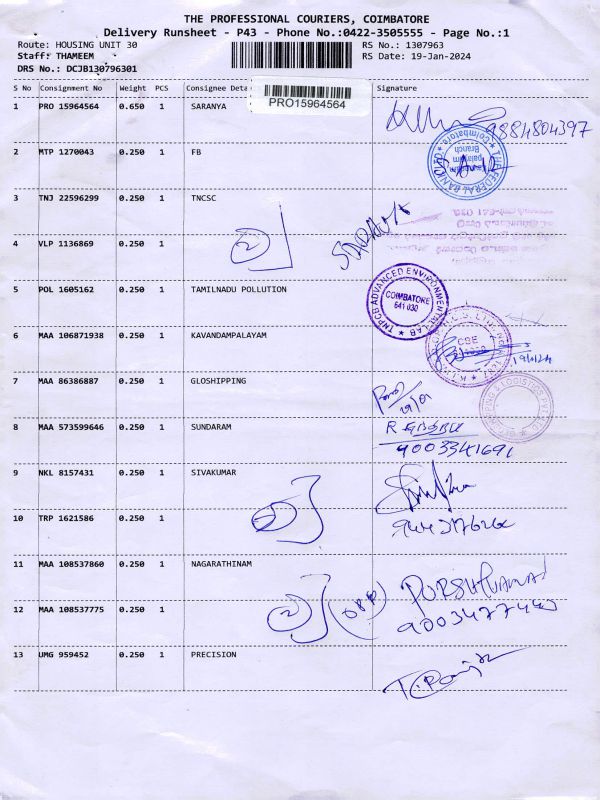 THE PROFESSIONAL COURIERS, COIMBATORE
Delivery Runsheet - P43 - Phone No.:0422-3505555 - Page No.:1
Route: HOUSING UNIT 30 RS No.: 1307963
Staff: THAMEEM RS Date: 19-Jan-2024
DRS No.: DCJB130796301
S No Consignment No Weight PCS Consignee Deta Signature
PRO15964564
1 PRO 15964564 0.650 1 SARANYA
9884804397
2 MTP 1270043 0.250 1 FB
THE FEDERAL BANK LTD Coimbatore
Branch
3 TNJ 22596299 0.250 1 TNCSC
4 VLP 1136869 0.250 1
5 POL 1605162 0.250 1 TAMILNADU POLLUTION
TNPCB ADVANCED ENVIRONMENTAL LAB
COIMBATORE
641 030
6 MAA 106871938 0.250 1 KAVANDAMPALAYAM
19/1/24
7 MAA 86386887 0.250 1 GLOSHIPPING
19/01
8 MAA 573599646 0.250 1 SUNDARAM
R BABU
9003341691
9 NKL 8157431 0.250 1 SIVAKUMAR
10 TRP 1621586 0.250 1
11 MAA 108537860 0.250 1 NAGARATHINAM
12 MAA 108537775 0.250 1
13 UMG 959452 0.250 1 PRECISION